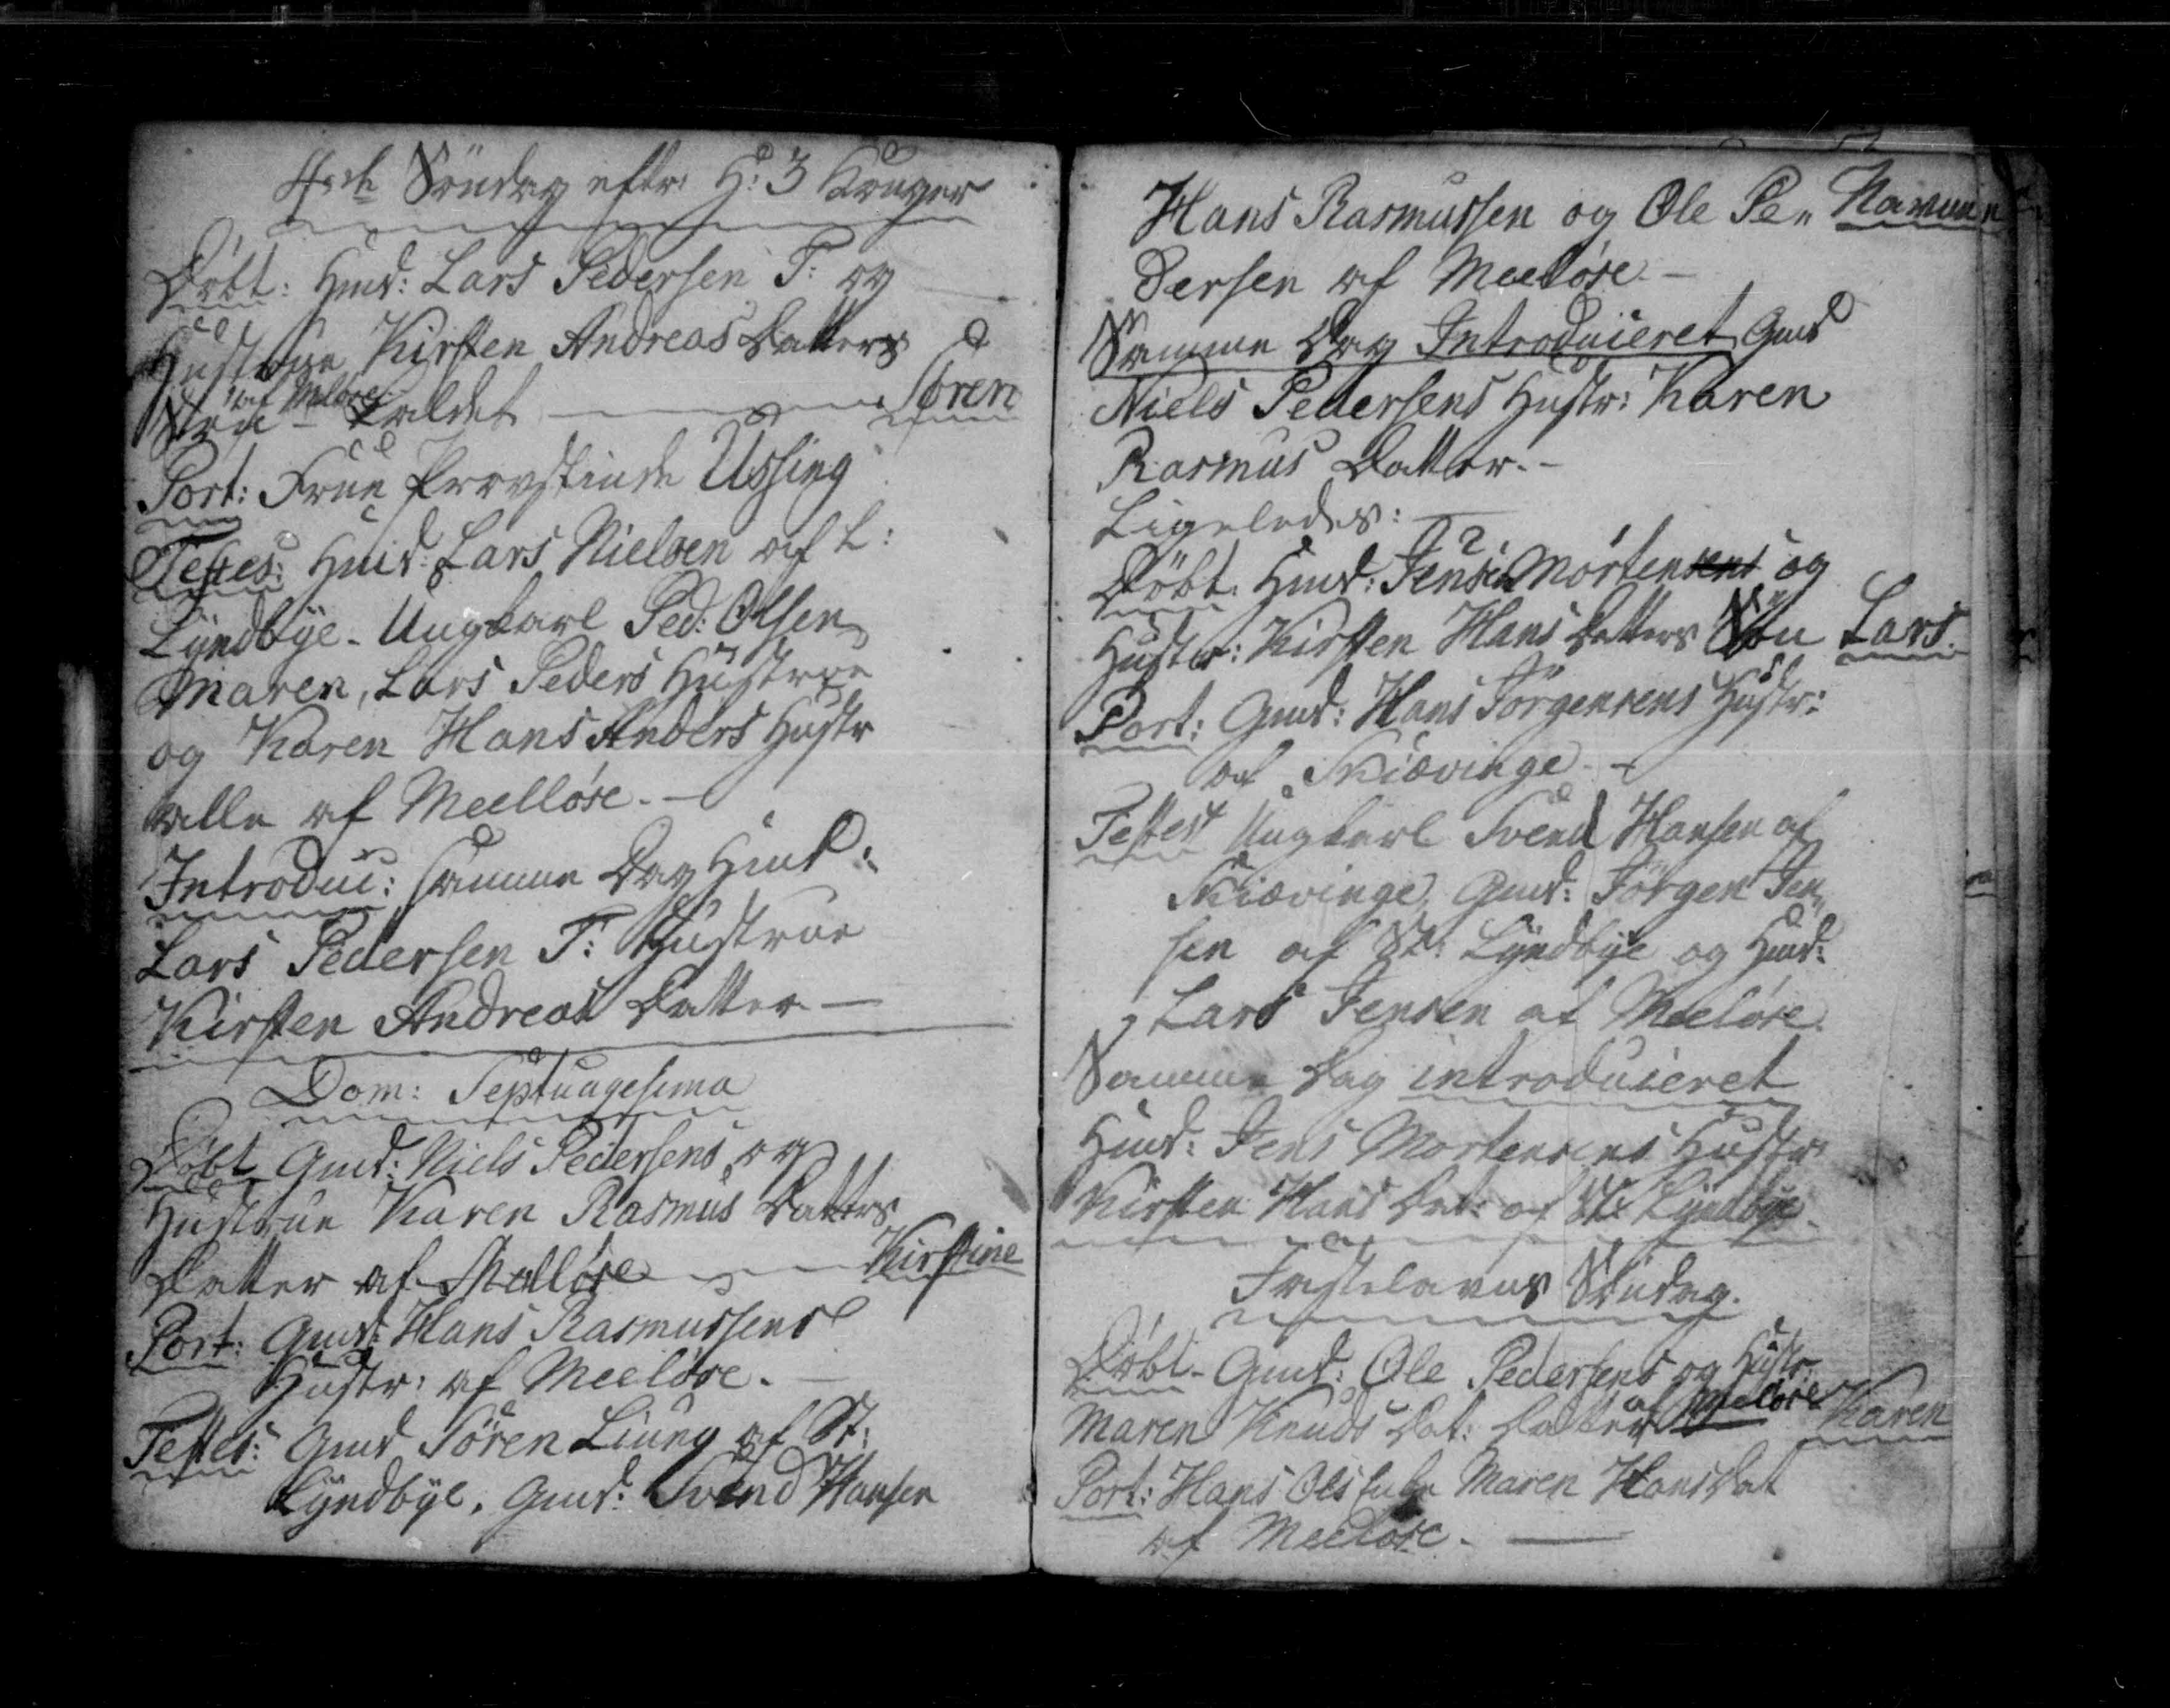 4de Söndag efter H: 3 Konger
Döbt: Hmd: Lars Pedersen T: og
Hustrue Kirsten Andreas Datters
af Meløse
Søn – kaldet — Sören
Port: Frue Provstinde Ussing
Testes: Hmd: Lars Nielsen af L:
Lyndbÿe – Ungkarl Ped: Olsen
Maren, Lars Peders Hustrue
og Karen Hans Anders Hustr
alle af Meelløse. –
Introduc: samme Dag Hmd:
Lars Pedersen T: Hustrue
Kirsten Andreas Datter –
Dom: Septuagesima
Döbt Gmd: Niels Pedersens og
Hustrue Karen Rasmus Datters
Datter af Melløse — Kirstine
Port: Gmd: Hans Rasmussens
Hustr: af Meeløse. –
Testes: Gmd Sören Liung af St:
Lÿndbÿe, Gmd: Svend Hansen
Hans Rasmussen og Ole Pe„ Navnene
dersen af Meeløse. –
Samme Dag Introducieret Gmd
Niels Pedersens Hustr: Karen
Rasmus Datter. –
Ligeledes:
Döbt. Hmd: Jens Mortensens og
Hustr: Kirsten Hans Datters Søn Lars.
Port: Gmd: Hans Jörgensens Hustr:
af Skiævinge. –
Testes Ungkarl Svend Hansen af
Skiævinge, Gmd: Jörgen Jen„
sen af St: Lÿndbÿe og Hmd:
Lars Jensen af Meeløse.
Samme Dag introducieret
Hmd: Jens Mortensens Hustr
Kirsten Hans Dat: af St: Lÿndbÿe.
Fastelavns Söndag.
Döbt – Gmd: Ole Pedersens og Hustr:
Maren Knuds Dat: Datter af Meløse Karen
Port: Hans Ols Maren Hans Dat
af Meeløse. —